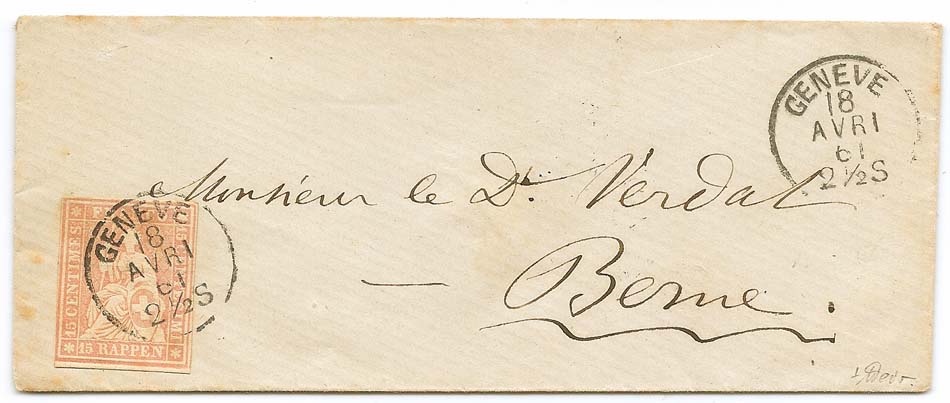 GENEVE
18
AVRI
61
2½S
Monsieur le Dr. Verdat
Berne.
GENEVE
18
AVRI
61
2½S
15 CENTIMES
15 RAPPEN